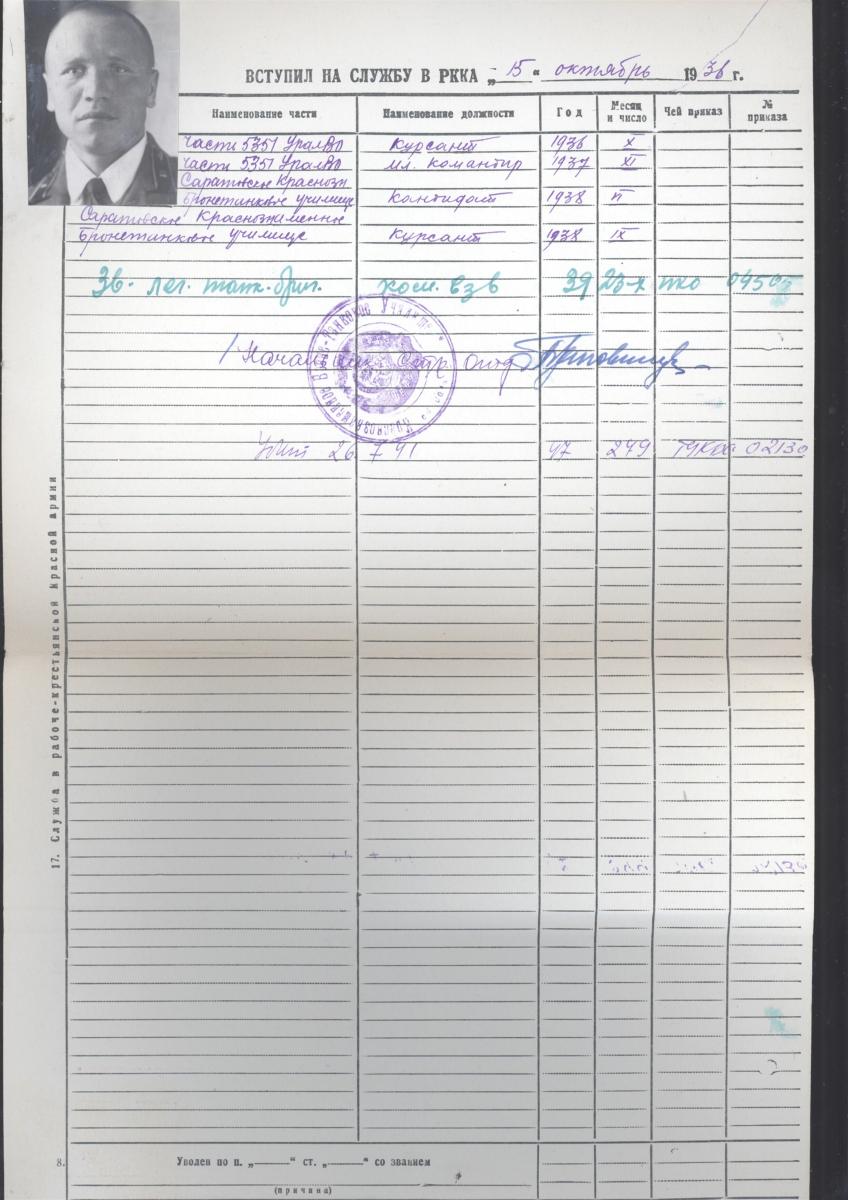 ВСТУПИЛ НА СЛУЖБУ В РККА „15“ октябрь 1936 г.
Наименование части Наименование должности Год Месяц и число Чей приказ № приказа
Части 5351 УралВО Курсант 1936 X
Части 5351 УралВО мл. командир 1937 XI
Саратовское Краснозн
Бронетанковое училище Кандидат 1938 II
Саратовское Краснознаменное
Бронетанковое училище Курсант 1938 IX
лег. танк. бриг. ком. взв 39 23-X нко 04505
Начальник Стр Отд
убит 26 7 41 47 249 02130
17. Служба в рабоче-крестьянской Красной армии
8. Уволен по п. „ “ ст. „ “ со званием
(причина)